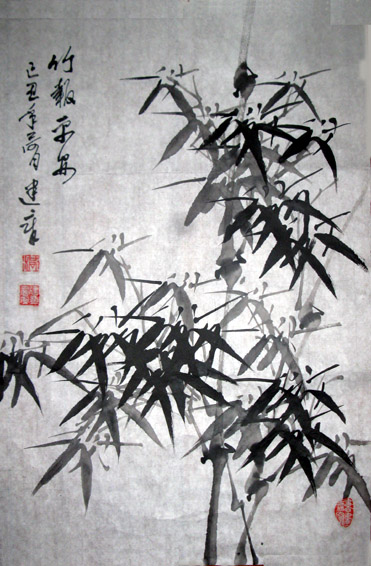 竹報平安
己丑年荷月建章